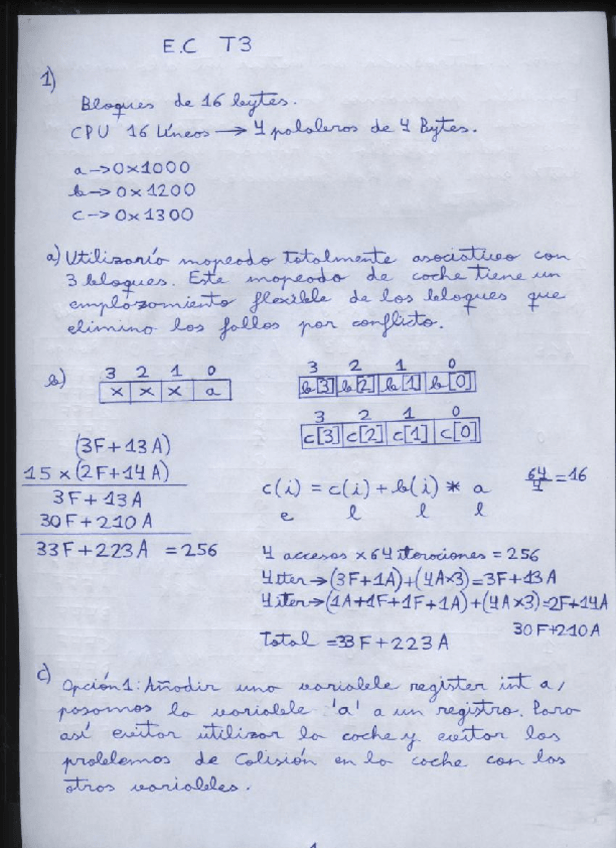 E.C T3
1)
Bloques de 16 bytes.
CPU 16 Líneas → 4 palabras de 4 Bytes.
a → 0x1000
b → 0x1200
c → 0x1300
a) Utilizaría mapeado totalmente asociativo con
3 bloques. Este mapeado de cache tiene un
emplazamiento flexible de los bloques que
elimina los fallos por conflicto.
b)
3 2 1 0
x x x a
3 2 1 0
b[3] b[2] b[1] b[0]
3 2 1 0
c[3] c[2] c[1] c[0]
(3F+13A)
15 x (2F+14A)
3F+13A
30F+210A
33F+223A = 256
c(i) = c(i) + b(i) * a
e l l l
64/4 = 16
4 accesos x 64 iteraciones = 256
4 iter → (3F+1A)+(4A×3)=3F+13A
4 iter → (1A+1F+1F+1A)+(4A×3)=2F+14A
30F+210A
Total = 33F+223A
c) Opción 1: Añadir una variable register int a,
pasamos la variable 'a' a un registro. Para
así evitar utilizar la cache y evitar los
problemas de Colisión en la cache con las
otras variables.
1